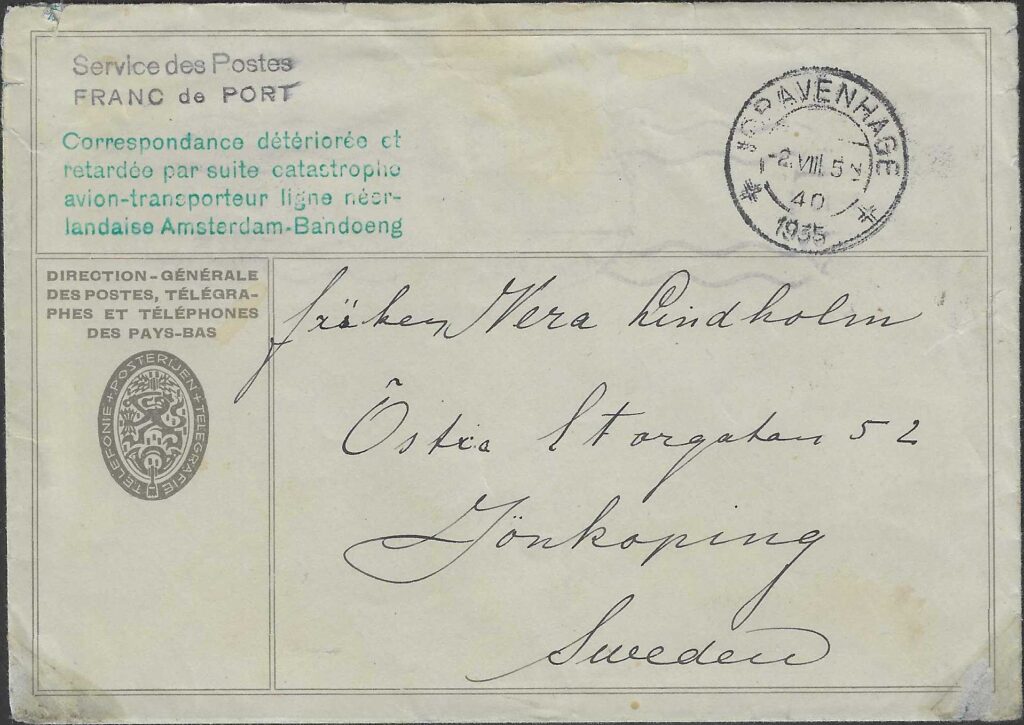 Service des Postes
FRANC de PORT
Correspondance détériorée et
retardée par suite catastrophe
avion-transporteur ligne néer-
landaise Amsterdam-Bandoeng
'SGRAVENHAGE
-2.VIII.5
40
1935
DIRECTION-GÉNÉRALE
DES POSTES, TÉLÉGRA-
PHES ET TÉLÉPHONES
DES PAYS-BAS
POSTERIJEN + TELEGRAFIE TELEFONIE +
fröken Vera Lindholm
Östra Storgatan 52
Jönkoping
Sweden